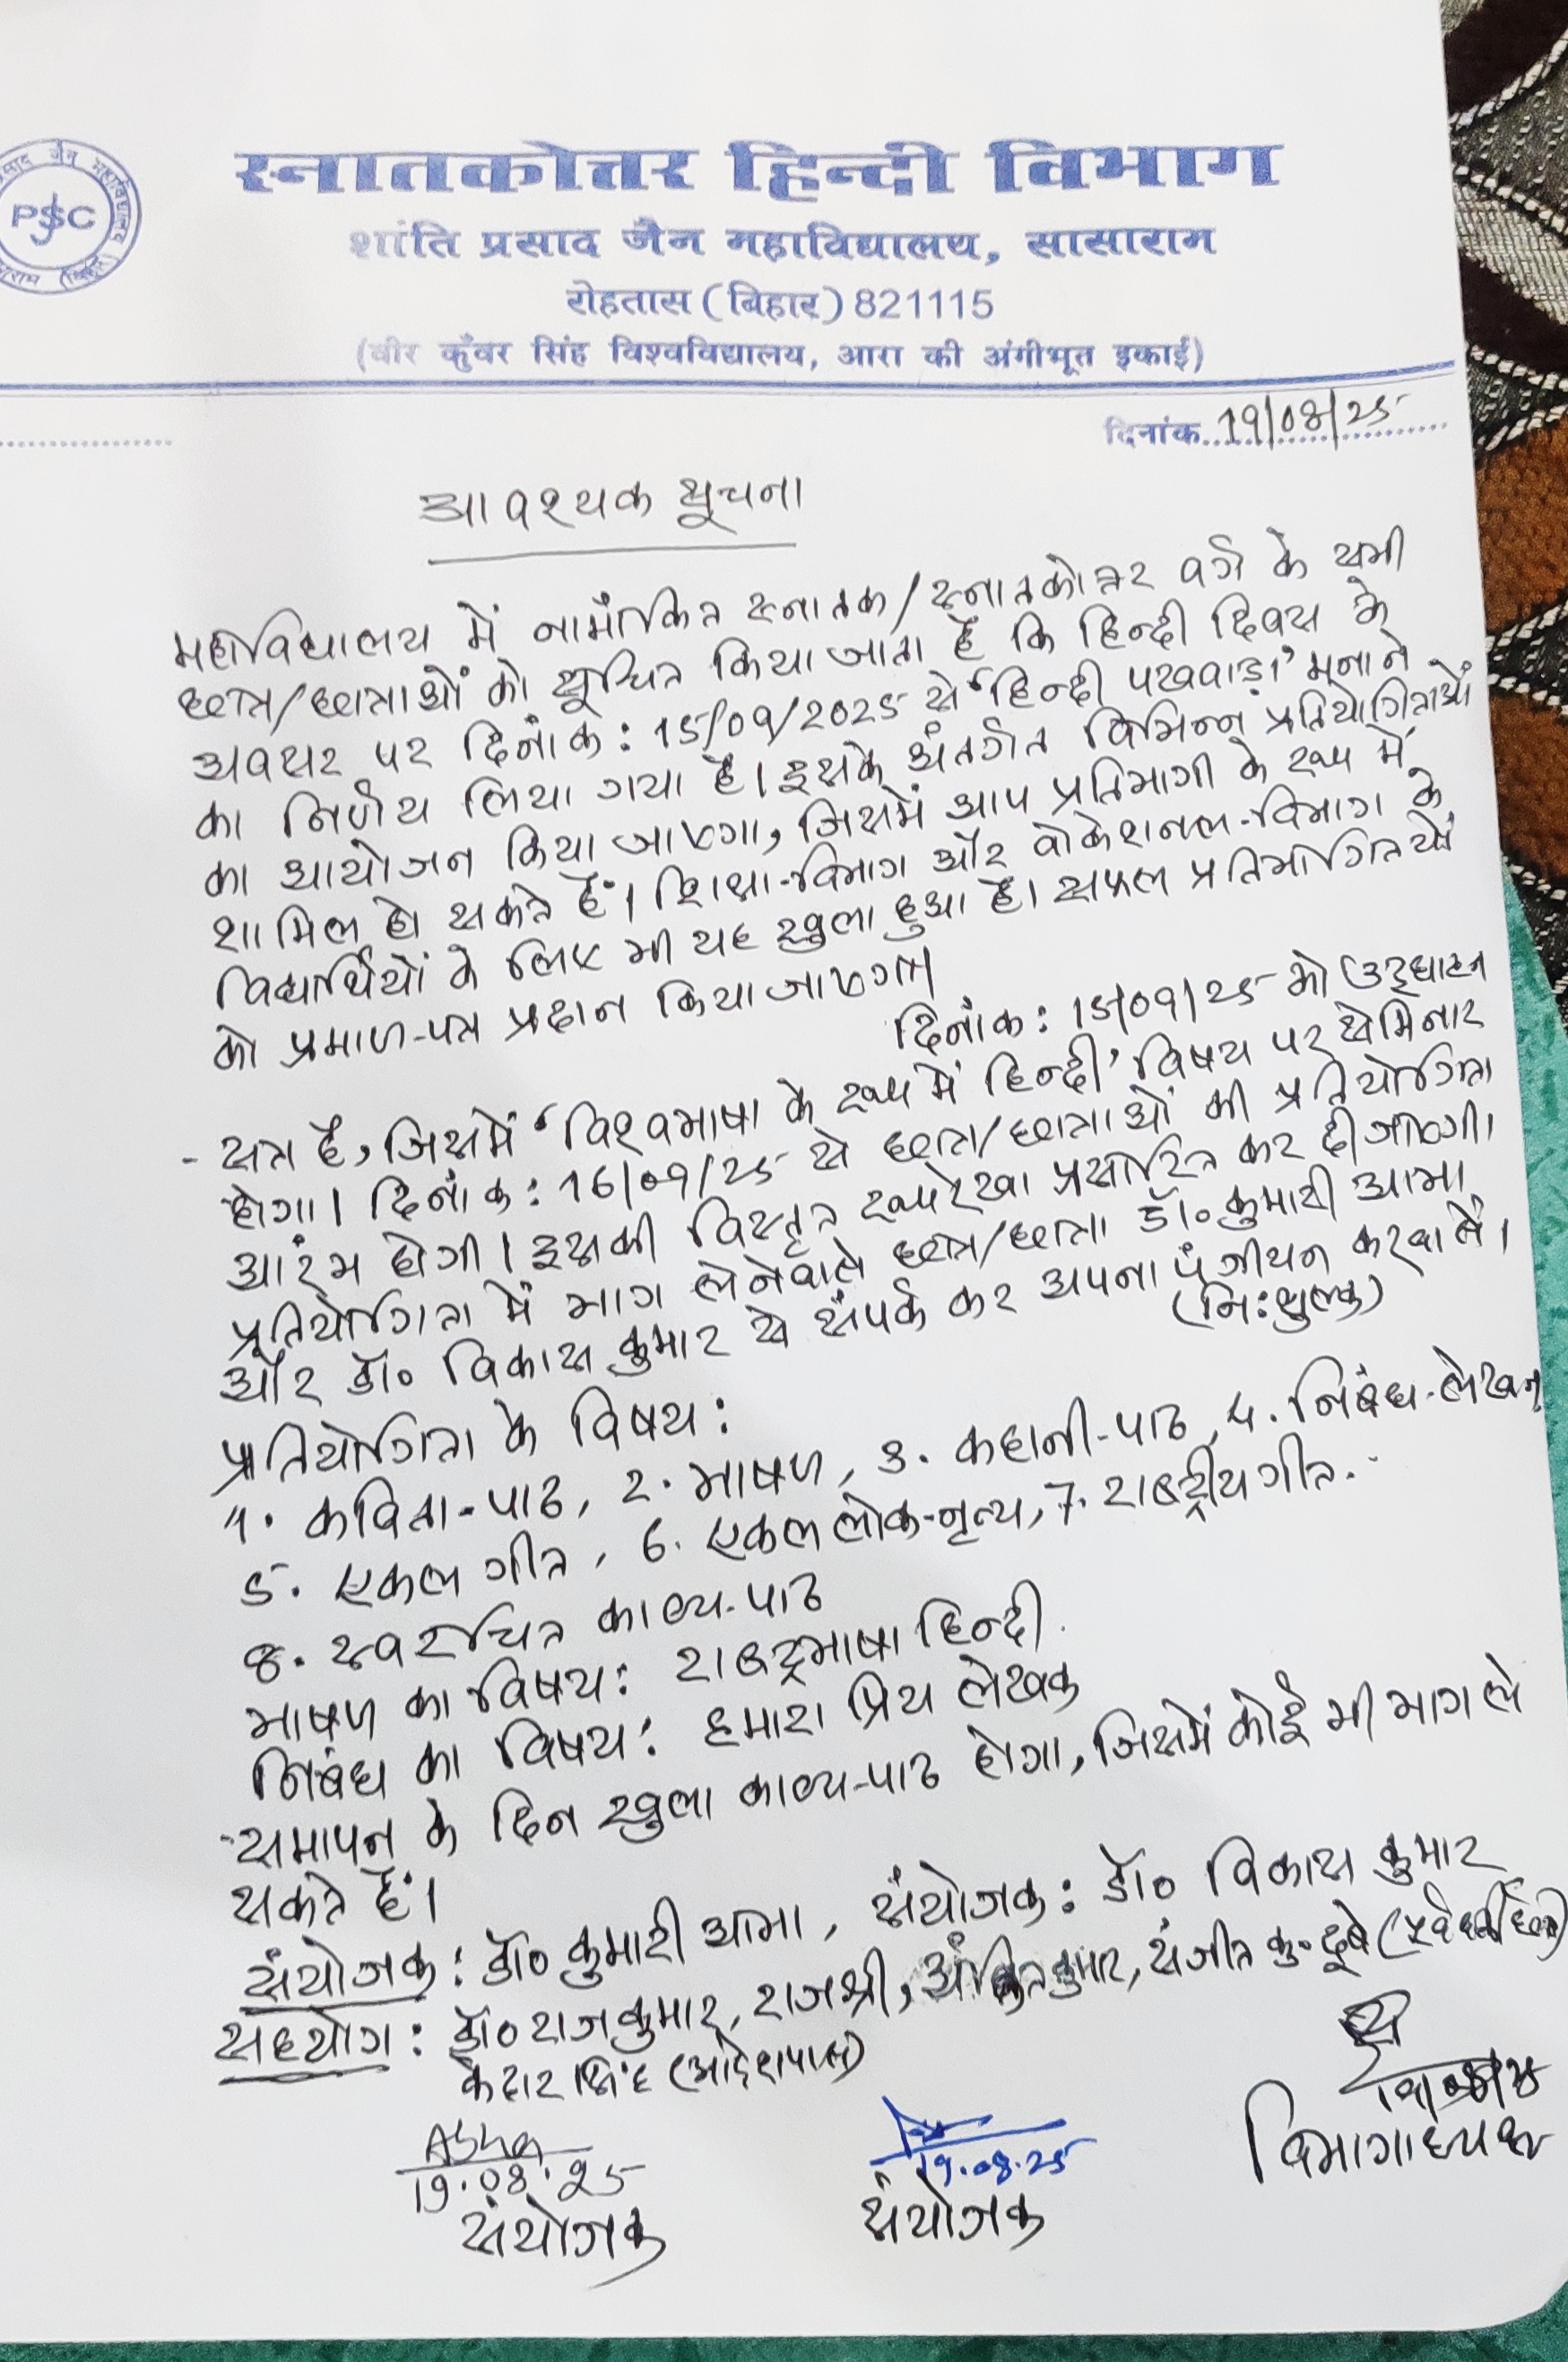 स्नातकोत्तर हिन्दी विभाग
PSJC
शांति प्रसाद जैन महाविद्यालय, सासाराम
रोहतास (बिहार) 821115
(वीर कुँवर सिंह विश्वविद्यालय, आरा की अंगीभूत इकाई)
दिनांक 19/08/25
आवश्यक सूचना
महाविद्यालय में नामांकित स्नातक/स्नातकोत्तर वर्ग के सभी
छात्र/छात्राओं को सूचित किया जाता है कि हिन्दी दिवस के
अवसर पर दिनांक: 15/09/2025 से 'हिन्दी पखवाड़ा' मनाने
का निर्णय लिया गया है। इसके अंतर्गत विभिन्न प्रतियोगिताओं
का आयोजन किया जाएगा, जिसमें आप प्रतिभागी के रूप में
शामिल हो सकते हैं। शिक्षा-विभाग और वोकेशनल-विभाग के
विद्यार्थियों के लिए भी यह खुला हुआ है। सफल प्रतिभागितयों
को प्रमाण-पत्र प्रदान किया जाएगा।
दिनांक: 15/09/25 को उद्घाटन
- सत्र है, जिसमें 'विश्वभाषा के रूप में हिन्दी' विषय पर सेमिनार
होगा। दिनांक: 16/09/25 से छात्र/छात्राओं की प्रतियोगिता
आरंभ होगी। इसकी विस्तृत रूपरेखा प्रसारित कर दी जाएगी।
प्रतियोगिता में भाग लेनेवाले छात्र/छात्रा डॉ० कुमारी आभा
और डॉ० विकास कुमार से संपर्क कर अपना पंजीयन करवा लें।
(नि:शुल्क)
प्रतियोगिता के विषय:
1. कविता-पाठ, 2. भाषण, 3. कहानी-पाठ, 4. निबंध-लेखन
5. एकल गीत, 6. एकल लोक-नृत्य, 7. राष्ट्रीय गीत.
8. स्वरचित काव्य-पाठ
भाषण का विषय: राष्ट्रभाषा हिन्दी.
निबंध का विषय: हमारा प्रिय लेखक
- समापन के दिन खुला काव्य-पाठ होगा, जिसमें कोई भी भाग ले
सकते हैं।
संयोजक: डॉ० कुमारी आभा, संयोजक: डॉ० विकास कुमार
सहयोग: डॉ० राजकुमार, राजश्री, अंकित कुमार, संजीत कु० दूबे
केदार सिंह (आदेशपाल)
Abha
19.08.25
संयोजक
19.08.25
संयोजक
विभागाध्यक्ष